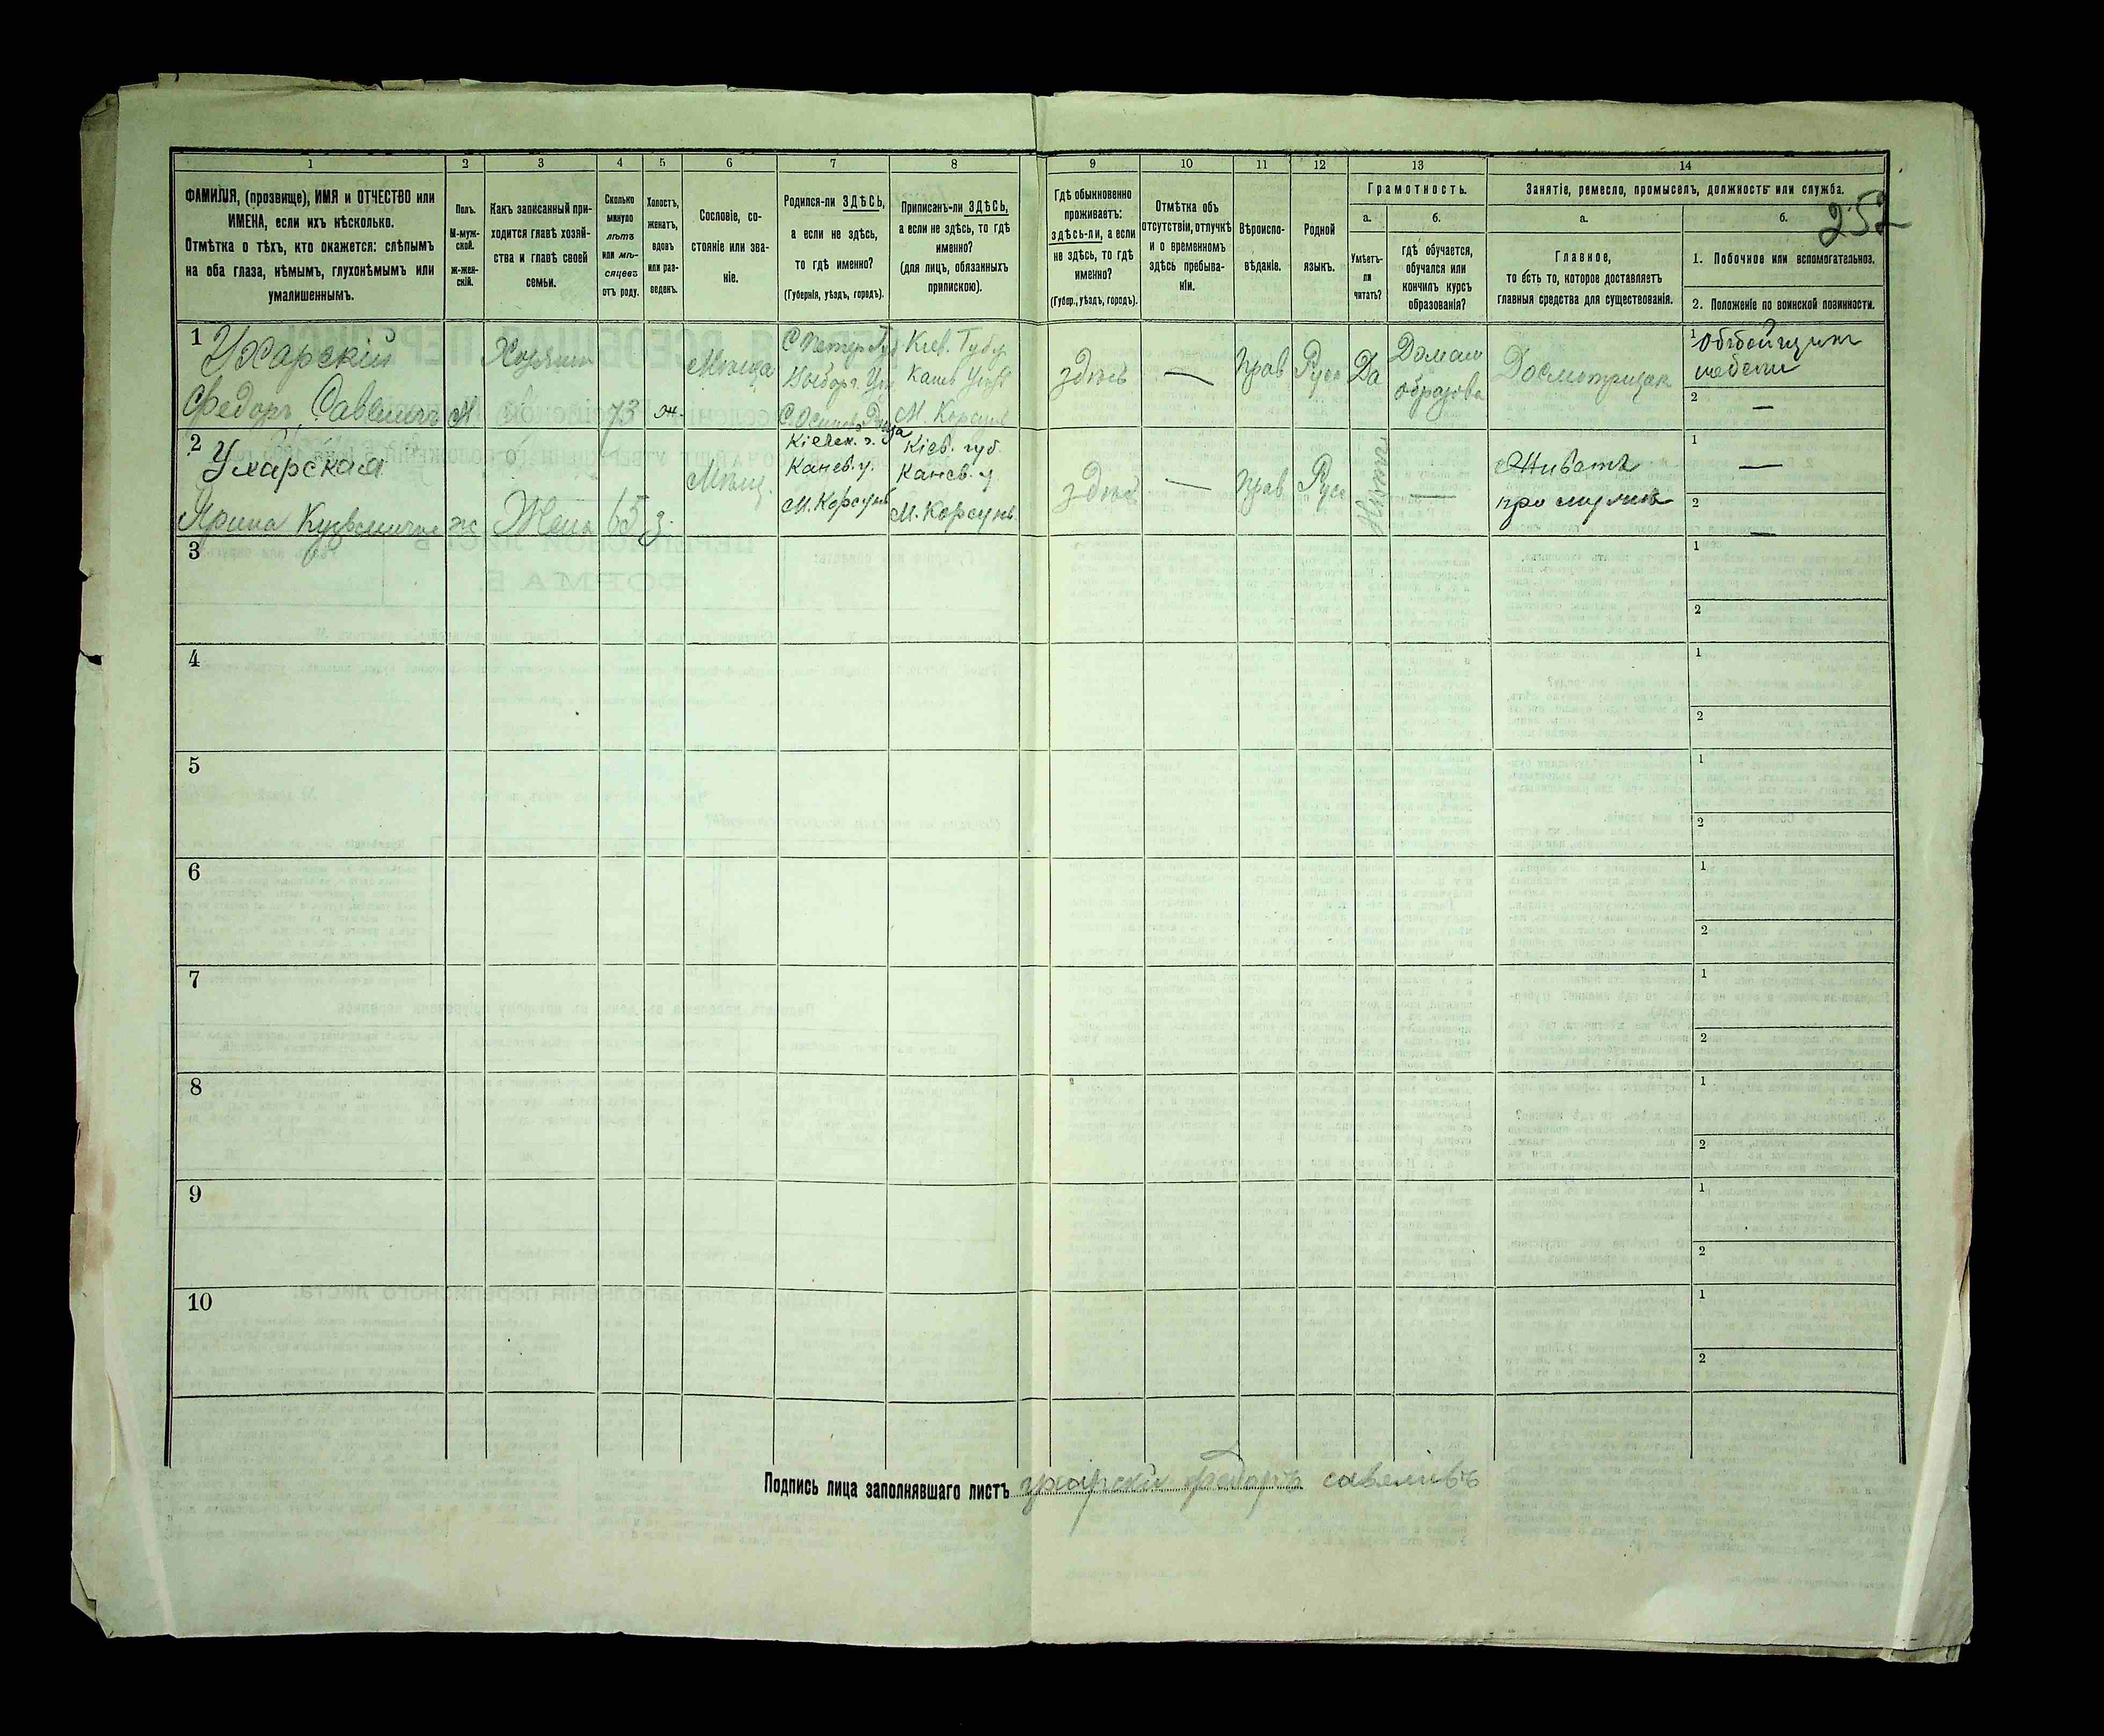 1 2 3 4 5 6 7 8 9 10 11 12 13 14
ФАМИЛІЯ, (прозвище), ИМЯ и ОТЧЕСТВО или
ИМЕНА, если ихъ нѣсколько.
Отмѣтка о тѣхъ, кто окажется: слѣпымъ
на оба глаза, нѣмымъ, глухонѣмымъ или
умалишеннымъ.
Полъ.
М-муж-
ской.
Ж-жен-
скій.
Какъ записанный при-
ходится главѣ хозяй-
ства и главѣ своей
семьи.
Сколько
минуло
лѣтъ
или мѣ-
сяцевъ
отъ роду.
Холостъ,
женатъ,
вдовъ
или раз-
веденъ.
Сословіе, со-
стояніе или зва-
ніе.
Родился-ли ЗДѢСЬ,
а если не здѣсь,
то гдѣ именно?
(Губернія, уѣздъ, городъ).
Приписанъ-ли ЗДѢСЬ,
а если не здѣсь, то гдѣ
именно?
(для лицъ, обязанныхъ
припискою).
Гдѣ обыкновенно
проживаетъ:
здѣсь-ли, а если
не здѣсь, то гдѣ
именно?
(Губер., уѣздъ, городъ).
Отмѣтка объ
отсутствіи, отлучкѣ
и о временномъ
здѣсь пребыва-
ніи.
Вѣроиспо-
вѣданіе.
Родной
языкъ.
Грамотность.
а.
Умѣетъ-
ли
читать?
б.
гдѣ обучается,
обучался или
кончилъ курсъ
образованія?
Занятіе, ремесло, промыселъ, должность или служба.
252
а.
Главное,
то есть то, которое доставляетъ
главныя средства для существованія.
б.
1. Побочное или вспомогательное.
2. Положеніе по воинской повинности.
1
Ухарскій
Федоръ Савеличъ
М
Хозяинъ
73
ж.
Мѣща
С Петер Губ
С Осинова Роща
Кіев. Губер
Канев Уезд
М. Корсунь
здѣсь
—
Прав
Руск
Да
Домаш
образова
Досмотрщик
1 Обойщикъ
мебели
2 —
2
Ухарская
Ярина Кузьминична
ж
Жена
65
з.
Мѣщ.
Кіевск. г.
Канев. у.
М. Корсунь
Кіев. губ.
Канев. у
М. Корсунь
здѣсь
—
Прав
Руск
Нѣтъ
—
Живетъ
при мужѣ
1 —
2 —
3
1
2
4
1
2
5
1
2
6
1
2
7
1
2
8
1
2
9
1
2
10
1
2
Подпись лица заполнявшаго листъ ухарски федоръ савеливъ